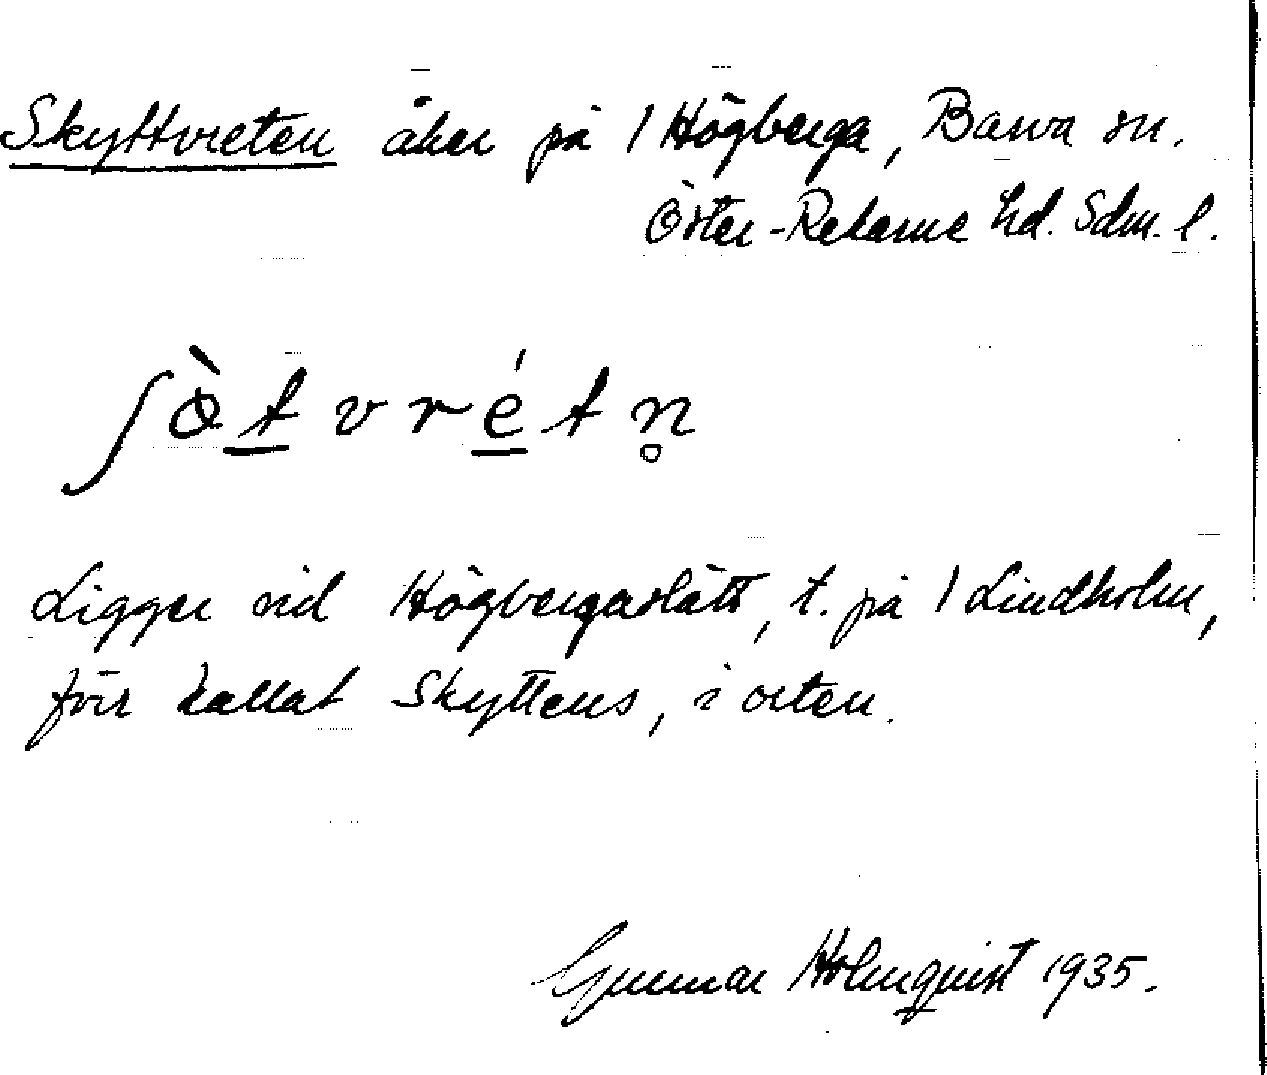 Skyttvreten åker på 1 Högberga, Barva sn.
Öster-Rekarne hd. Sdm. l.
ʃɵ̀t̲vré̲tn̥
Ligger vid Högbergaslätt, t. på 1 Lindholm,
förr kallat Skyttens, i orten.
Gunnar Holmquist 1935.